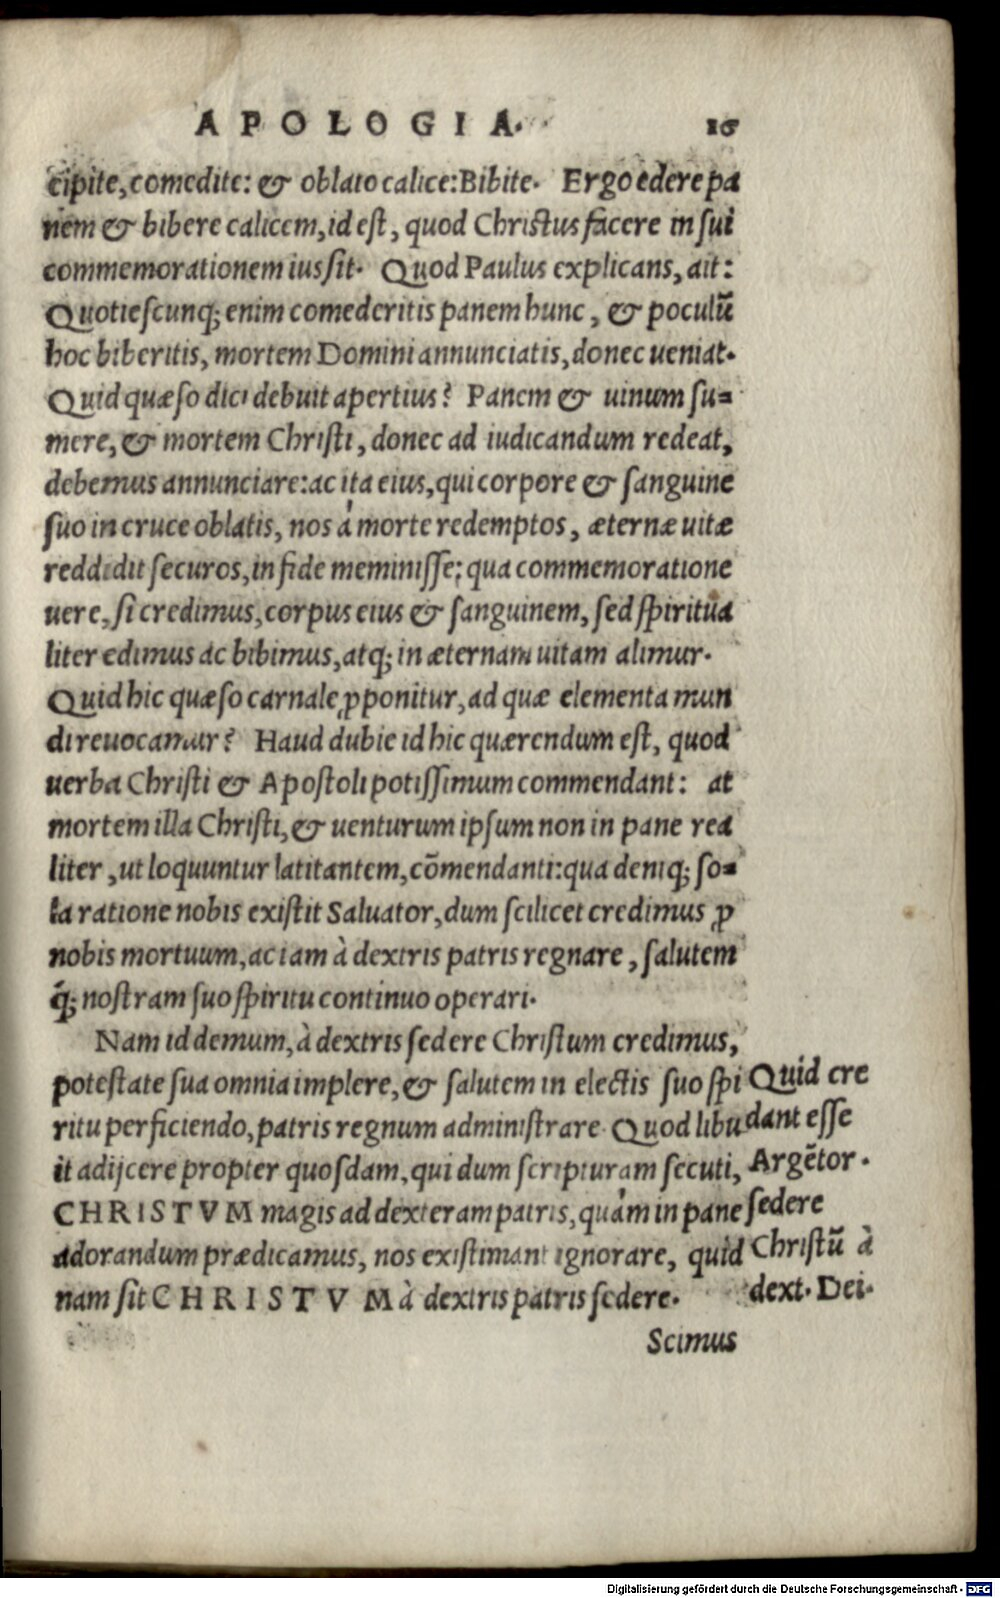 APOLOGIA. 16
cipite, comedite: & oblato calice: Bibite. Ergo edere pa
nem & bibere calicem, id est, quod Christus facere in sui
commemorationem iussit. Quod Paulus explicans, ait:
Quotiescunq; enim comederitis panem hunc, & poculū
hoc biberitis, mortem Domini annunciatis, donec ueniat.
Quid quæso dici debuit apertius? Panem & uinum su=
mere, & mortem Christi, donec ad iudicandum redeat,
debemus annunciare: ac ita eius, qui corpore & sanguine
suo in cruce oblatis, nos à morte redemptos, æternæ uitæ
reddidit securos, in fide meminisse: qua commemoratione
uere, si credimus, corpus eius & sanguinem, sed spiritua
liter edimus ac bibimus, atq; in æternam uitam alimur.
Quid hic quæso carnale ꝓponitur, ad quæ elementa mun
di reuocamur? Haud dubie id hic quærendum est, quod
uerba Christi & Apostoli potissimum commendant: at
mortem illa Christi, & uenturum ipsum non in pane rea
liter, ut loquuntur latitantem, cōmendanti: qua deniq; so=
la ratione nobis existit Saluator, dum scilicet credimus ꝓ
nobis mortuum, ac iam à dextris patris regnare, salutem
q́; nostram suo spiritu continuo operari.
Nam id demum, à dextris sedere Christum credimus,
potestate sua omnia implere, & salutem in electis suo spi
ritu perficiendo, patris regnum administrare. Quod libu
it adijcere propter quosdam, qui dum scripturam secuti,
CHRISTVM magis ad dexteram patris, quàm in pane
adorandum prædicamus, nos existimant ignorare, quid
nam sit CHRISTVM à dextris patris sedere.
Quid cre
dant esse
Argētor.
sedere
Christū à
dext. Dei.
Scimus
Digitalisierung gefördert durch die Deutsche Forschungsgemeinschaft - DFG